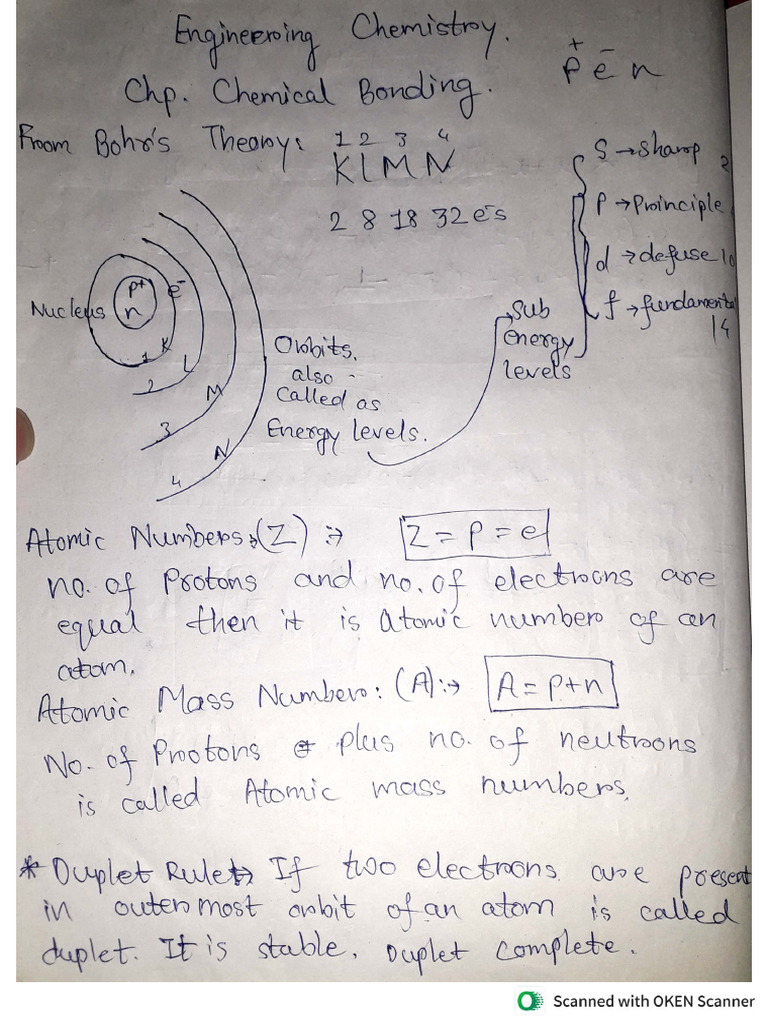 Engineering Chemistry.
Chp. Chemical Bonding.
+ -
P e n
From Bohr's Theory:
1 2 3 4
K L M N
2 8 18 32 e-s
S → sharp 2
P → Principle
d → defuse 10
f → fundamental
14
Sub
energy
levels
Nucleus
P+
n
e-
1 K
2 L
3 M
4 N
Orbits.
also
called as
Energy levels.
Atomic Numbers:(Z) :→ Z = P = e
no. of Protons and no. of electrons are
equal then it is atomic number of an
atom.
Atomic Mass Number: (A):→ A = P+n
No. of Protons plus no. of neutrons
is called Atomic mass numbers.
* Duplet Rule→ If two electrons are present
in outermost orbit of an atom is called
duplet. It is stable. Duplet complete.
Scanned with OKEN Scanner